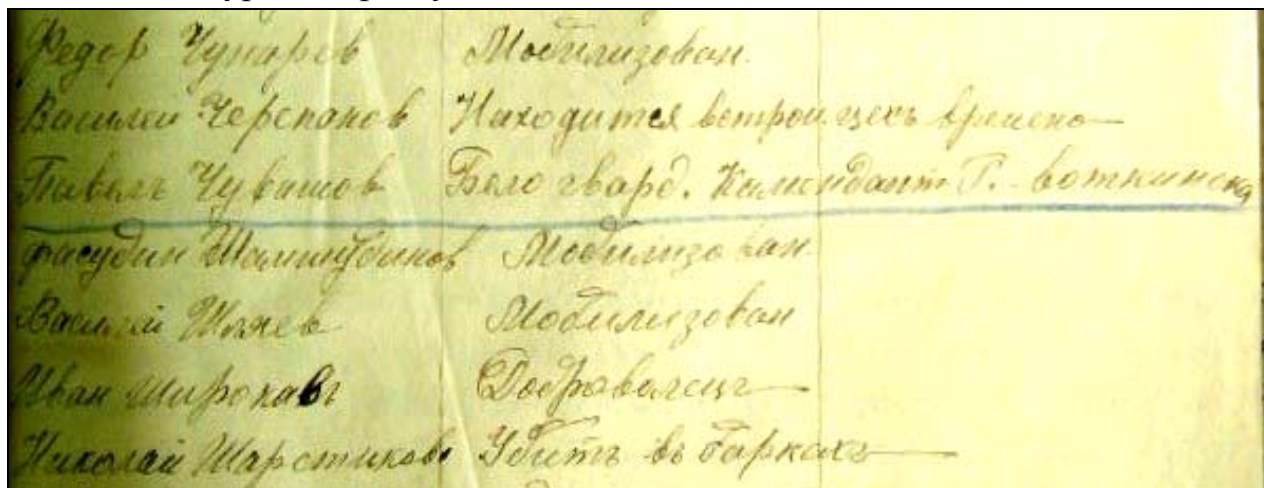 Федор Чунарев Мобилизован.
Василий Черепанов Находится встроит. цехъ времено
Павелъ Чувашов Бело гвард. Камендант Г. - воткинска
Шамшудинов Мобилизован.
Василий Шляев Мобилизован
Иван Широкавъ Добравалецъ
Николай Шерстиковъ Убитъ въ баркахъ